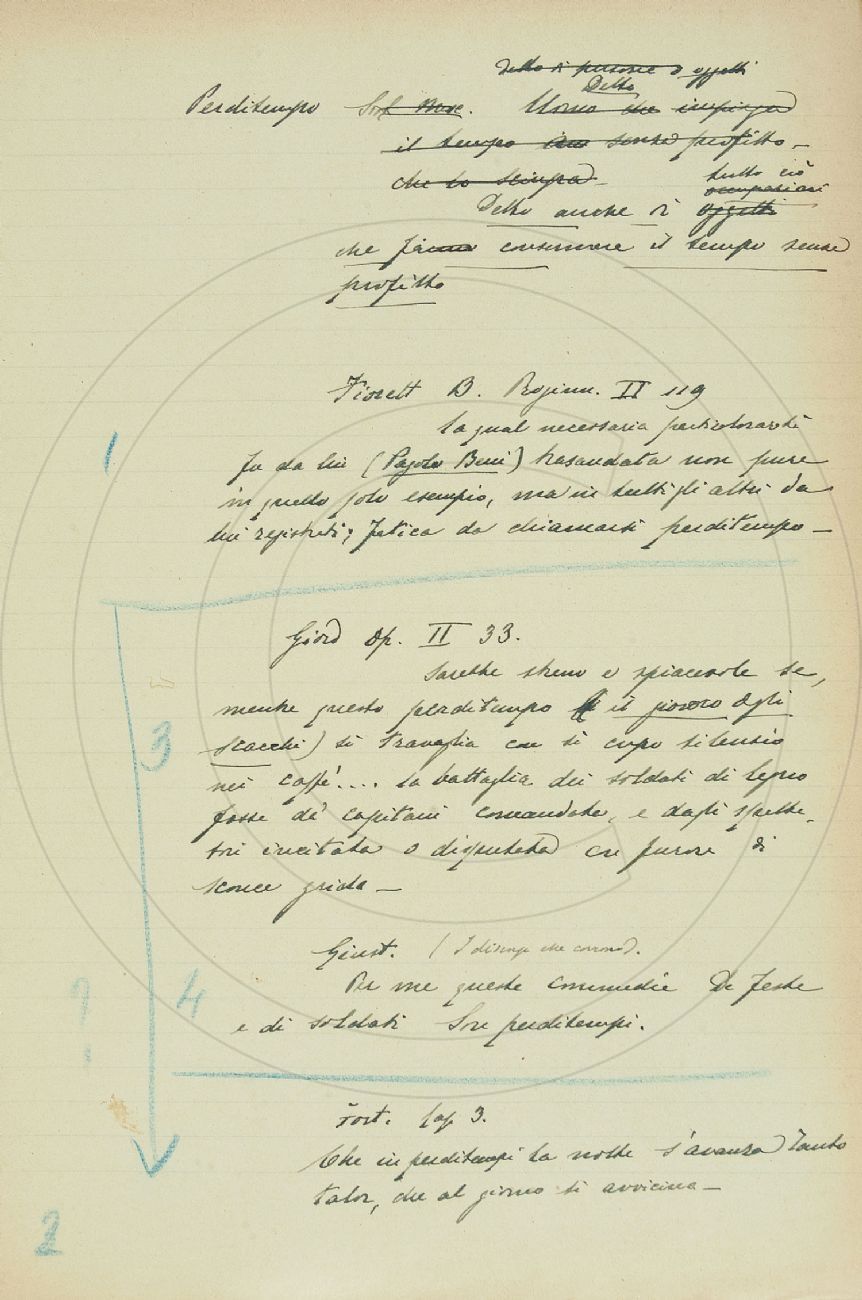 Detto di persone o oggetti
Detto
Perditempo Sost. Masc. Uomo che impiega
il tempo senza profitto. —
che lo sciupa —
tutto ciò
occupazioni
Detto anche di oggetti
che fanno consumare il tempo senza
profitto
Fiorett B. Proginn. II 119
la qual necessaria particolarità
1
fu da lui (Pagolo Beni) trasandata non pure
in quello solo esempio, ma in tutti gli altri da
lui registrati; fatica da chiamarsi perditempo —
Giord Op. II 33.
Sarebbe strano e spiacevole se,
mentre questo perditempo il giuoco degli
3
scacchi) si travaglia con sì cupo silenzio
nei caffè.... la battaglia dei soldati di legno
fosse de' capitani comandata, e dagli spetta-
tori incitata o disputata con furore di
sconce grida —
Giust. (I discorsi che corrono).
Per me queste commedie Di feste
4
e di soldati Son perditempi.
Fort. Cap 3.
Che in perditempi la notte s'avanza Tanto
talor, che al giorno si avvicina —
2